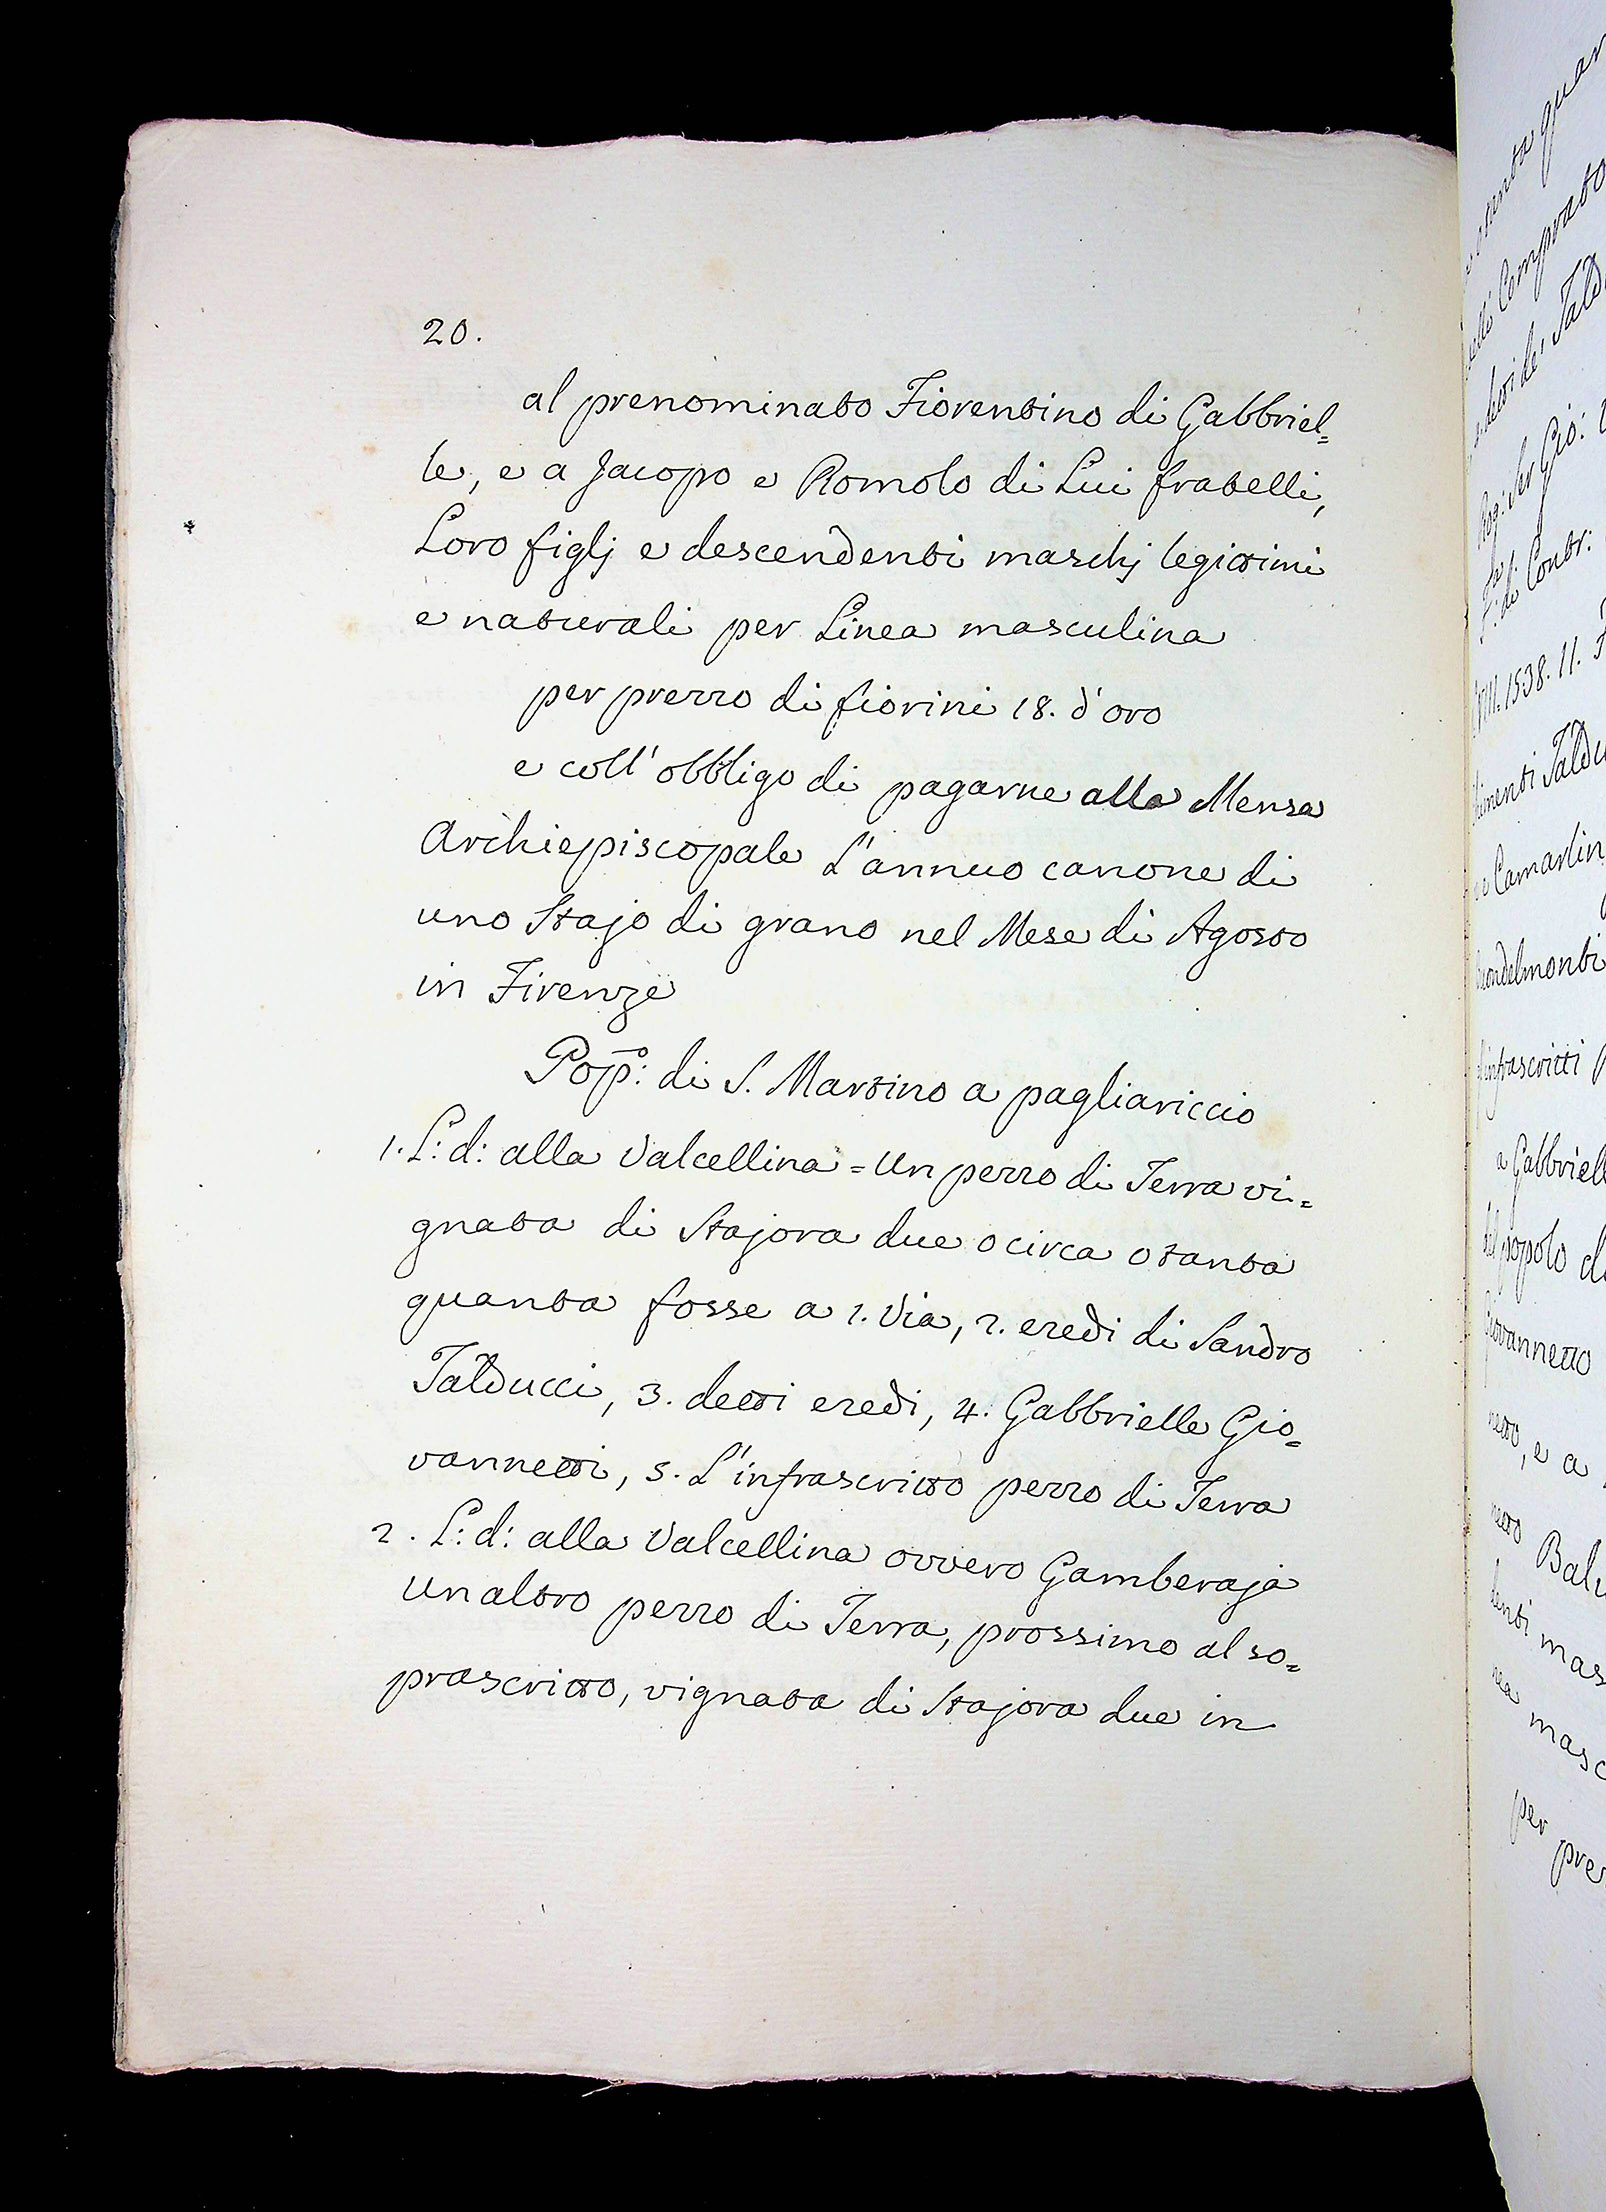 20.
al prenominato Fiorentino di Gabbriel=
le, e a Jacopo e Romolo di Lui fratelli,
Loro figlj e descendenti maschj legittimi
e naturali per Linea masculina
per prezzo di fiorini 18. d'oro
e coll'obbligo di pagarne alla Mensa
Archiepiscopale L'annuo canone di
uno Stajo di grano nel Mese di Agosto
in Firenze
Pop̄o: di S. Martino a pagliariccio
1. L: d: alla Valcellina = Un pezzo di Terra vi=
gnata di Stajora due o circa o tanta
quanta fosse a 1. Via, 2. eredi di Sandro
Talducci, 3. detti eredi, 4. Gabbrielle Gio=
vannetti, 5. L'infrascritto pezzo di Terra
2. L: d: alla Valcellina ovvero Gamberaja
un altro pezzo di Terra, prossimo al so=
prascritto, vignata di Stajora due in
quan
Comprato
de' Tald
Ser Gio:
F: di Contr:
1538. 11.
Taldu
Camarlin
infrascritti
a Gabbriell
popolo d
Giovannetto
netto, e a
netto Balu
denti mas
nea masc
per pre